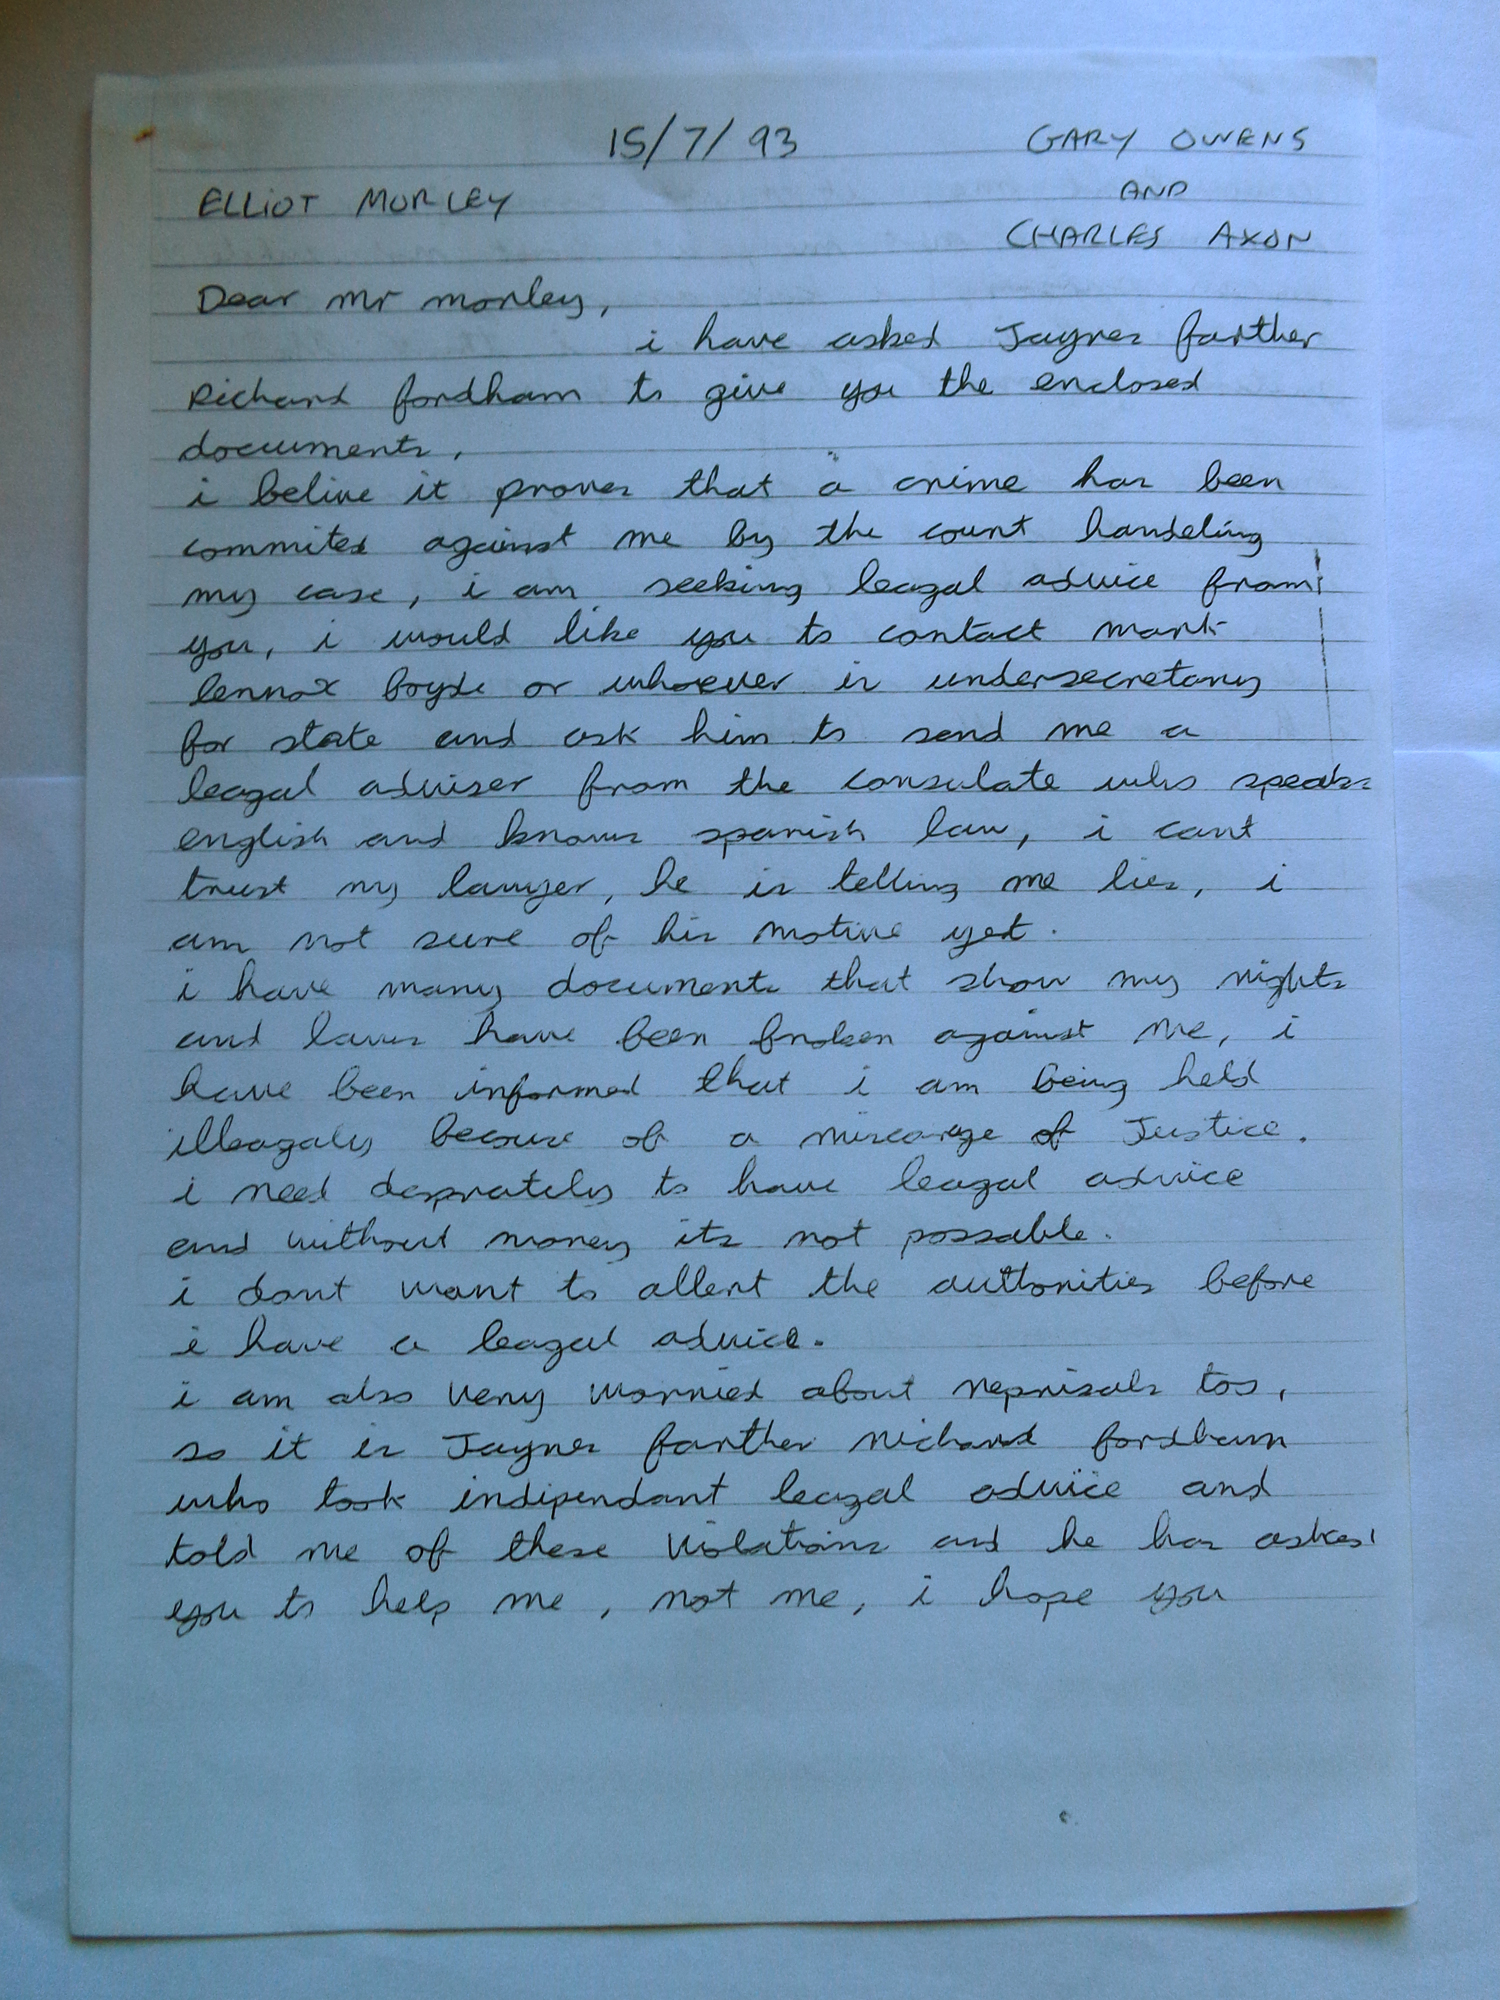 15/7/93 GARY OWENS
ELLIOT MORLEY AND
CHARLES AXON
Dear mr morley,
i have asked Jaynes farther
Richard fordham to give you the enclosed
documents,
i belive it proves that a crime has been
commited against me by the court handeling
my case, i am seeking leagal advice from
you, i would like you to contact mark
lennox boyde or whoever is undersecretary
for state and ask him to send me a
leagal adviser from the consulate who speaks
english and knows spanish law, i cant
trust my lawyer, he is telling me lies, i
am not sure of his motive yet.
i have many documents that show my rights
and laws have been broken against me, i
have been informed that i am being held
illeagaly becouse of a miscarage of Justice.
i need desprately to have leagal advice
and without money its not possable.
i dont want to allert the authorities before
i have a leagal advice.
i am also very worried about reprisals too,
so it is Jaynes farther richard fordham
who took indipendant leagal advice and
told me of these violations and he has asked
you to help me, not me, i hope you